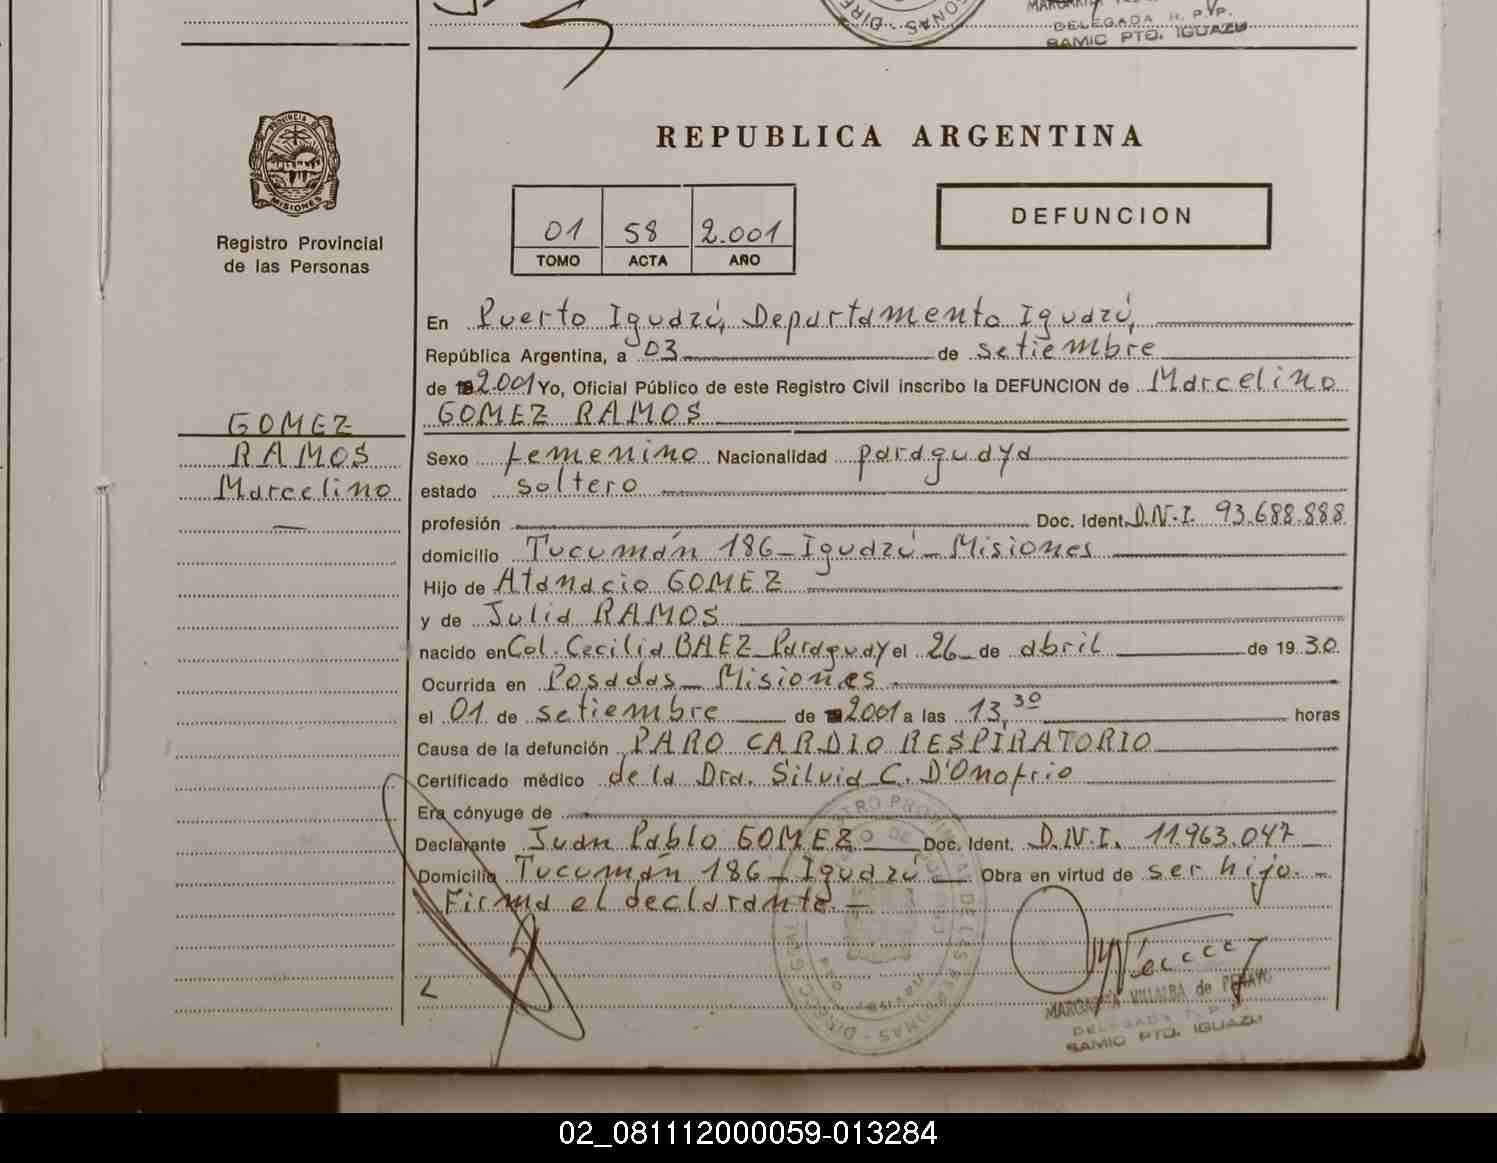 DELEGADA R. P. P.
SAMIC PTO. IGUAZU
PROVINCIA DE
MISIONES
Registro Provincial
de las Personas
REPUBLICA ARGENTINA
01 58 2.001
TOMO ACTA AÑO
DEFUNCION
En Puerto Iguazú, Departamento Iguazú,
República Argentina, a 03 de setiembre
de 2.001 Yo, Oficial Público de este Registro Civil inscribo la DEFUNCION de Marcelino
GOMEZ RAMOS
GOMEZ
RAMOS
Marcelino
Sexo femenino Nacionalidad paraguaya
estado soltero
profesión Doc. Ident. D.N.I. 93.688.888
domicilio Tucumán 186 - Iguazú - Misiones
Hijo de Atanacio GOMEZ
y de Julia RAMOS
nacido en Col. Cecilia BAEZ Paraguay el 26 de abril de 1930.
Ocurrida en Posadas - Misiones
el 01 de setiembre de 2001 a las 13,30 horas
Causa de la defunción PARO CARDIO RESPIRATORIO
Certificado médico de la Dra. Silvia C. D'Onofrio
Era cónyuge de
Declarante Juan Pablo GOMEZ Doc. Ident. D.N.I. 11.963.047
Domicilio Tucumán 186 - Iguazú Obra en virtud de ser hijo. -
Firma el declarante. -
MARGARITA VILLALBA de
DELEGADA R. P. P.
SAMIC PTO. IGUAZU
02_081112000059-013284